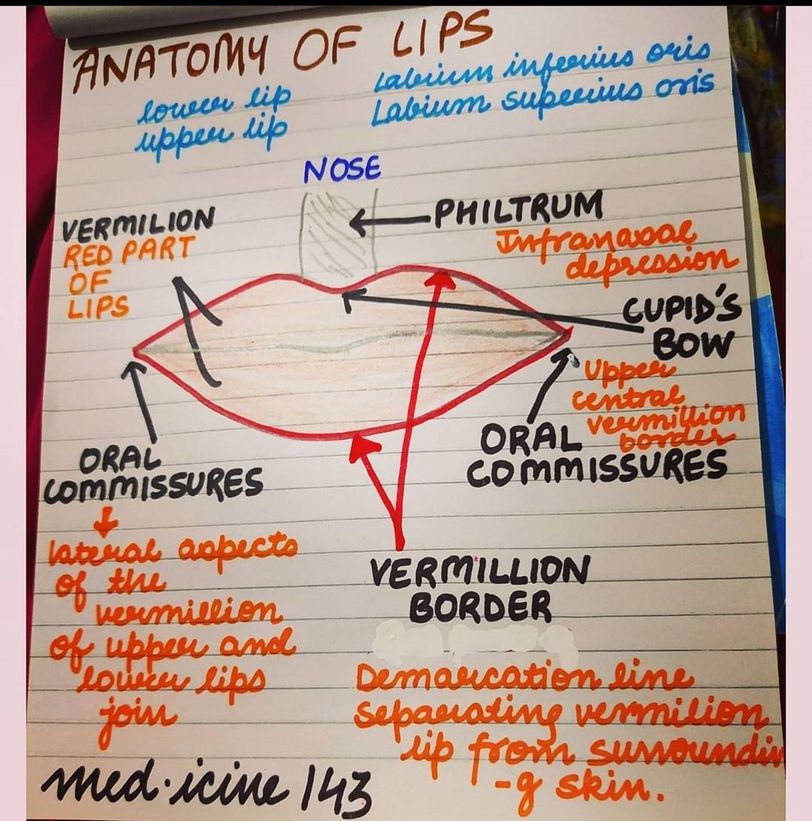 ANATOMY OF LIPS
lower lip
labium inferius oris
upper lip
Labium superius oris
NOSE
VERMILION
RED PART
OF
LIPS
PHILTRUM
Infranasal
depression
CUPID'S
BOW
Upper
central
vermillion
border
ORAL
COMMISSURES
ORAL
COMMISSURES
lateral aspects
of the
vermillion
of upper and
lower lips
join
VERMILLION
BORDER
Demarcation line
separating vermilion
lip from surroundin
-g skin.
med.icine 143